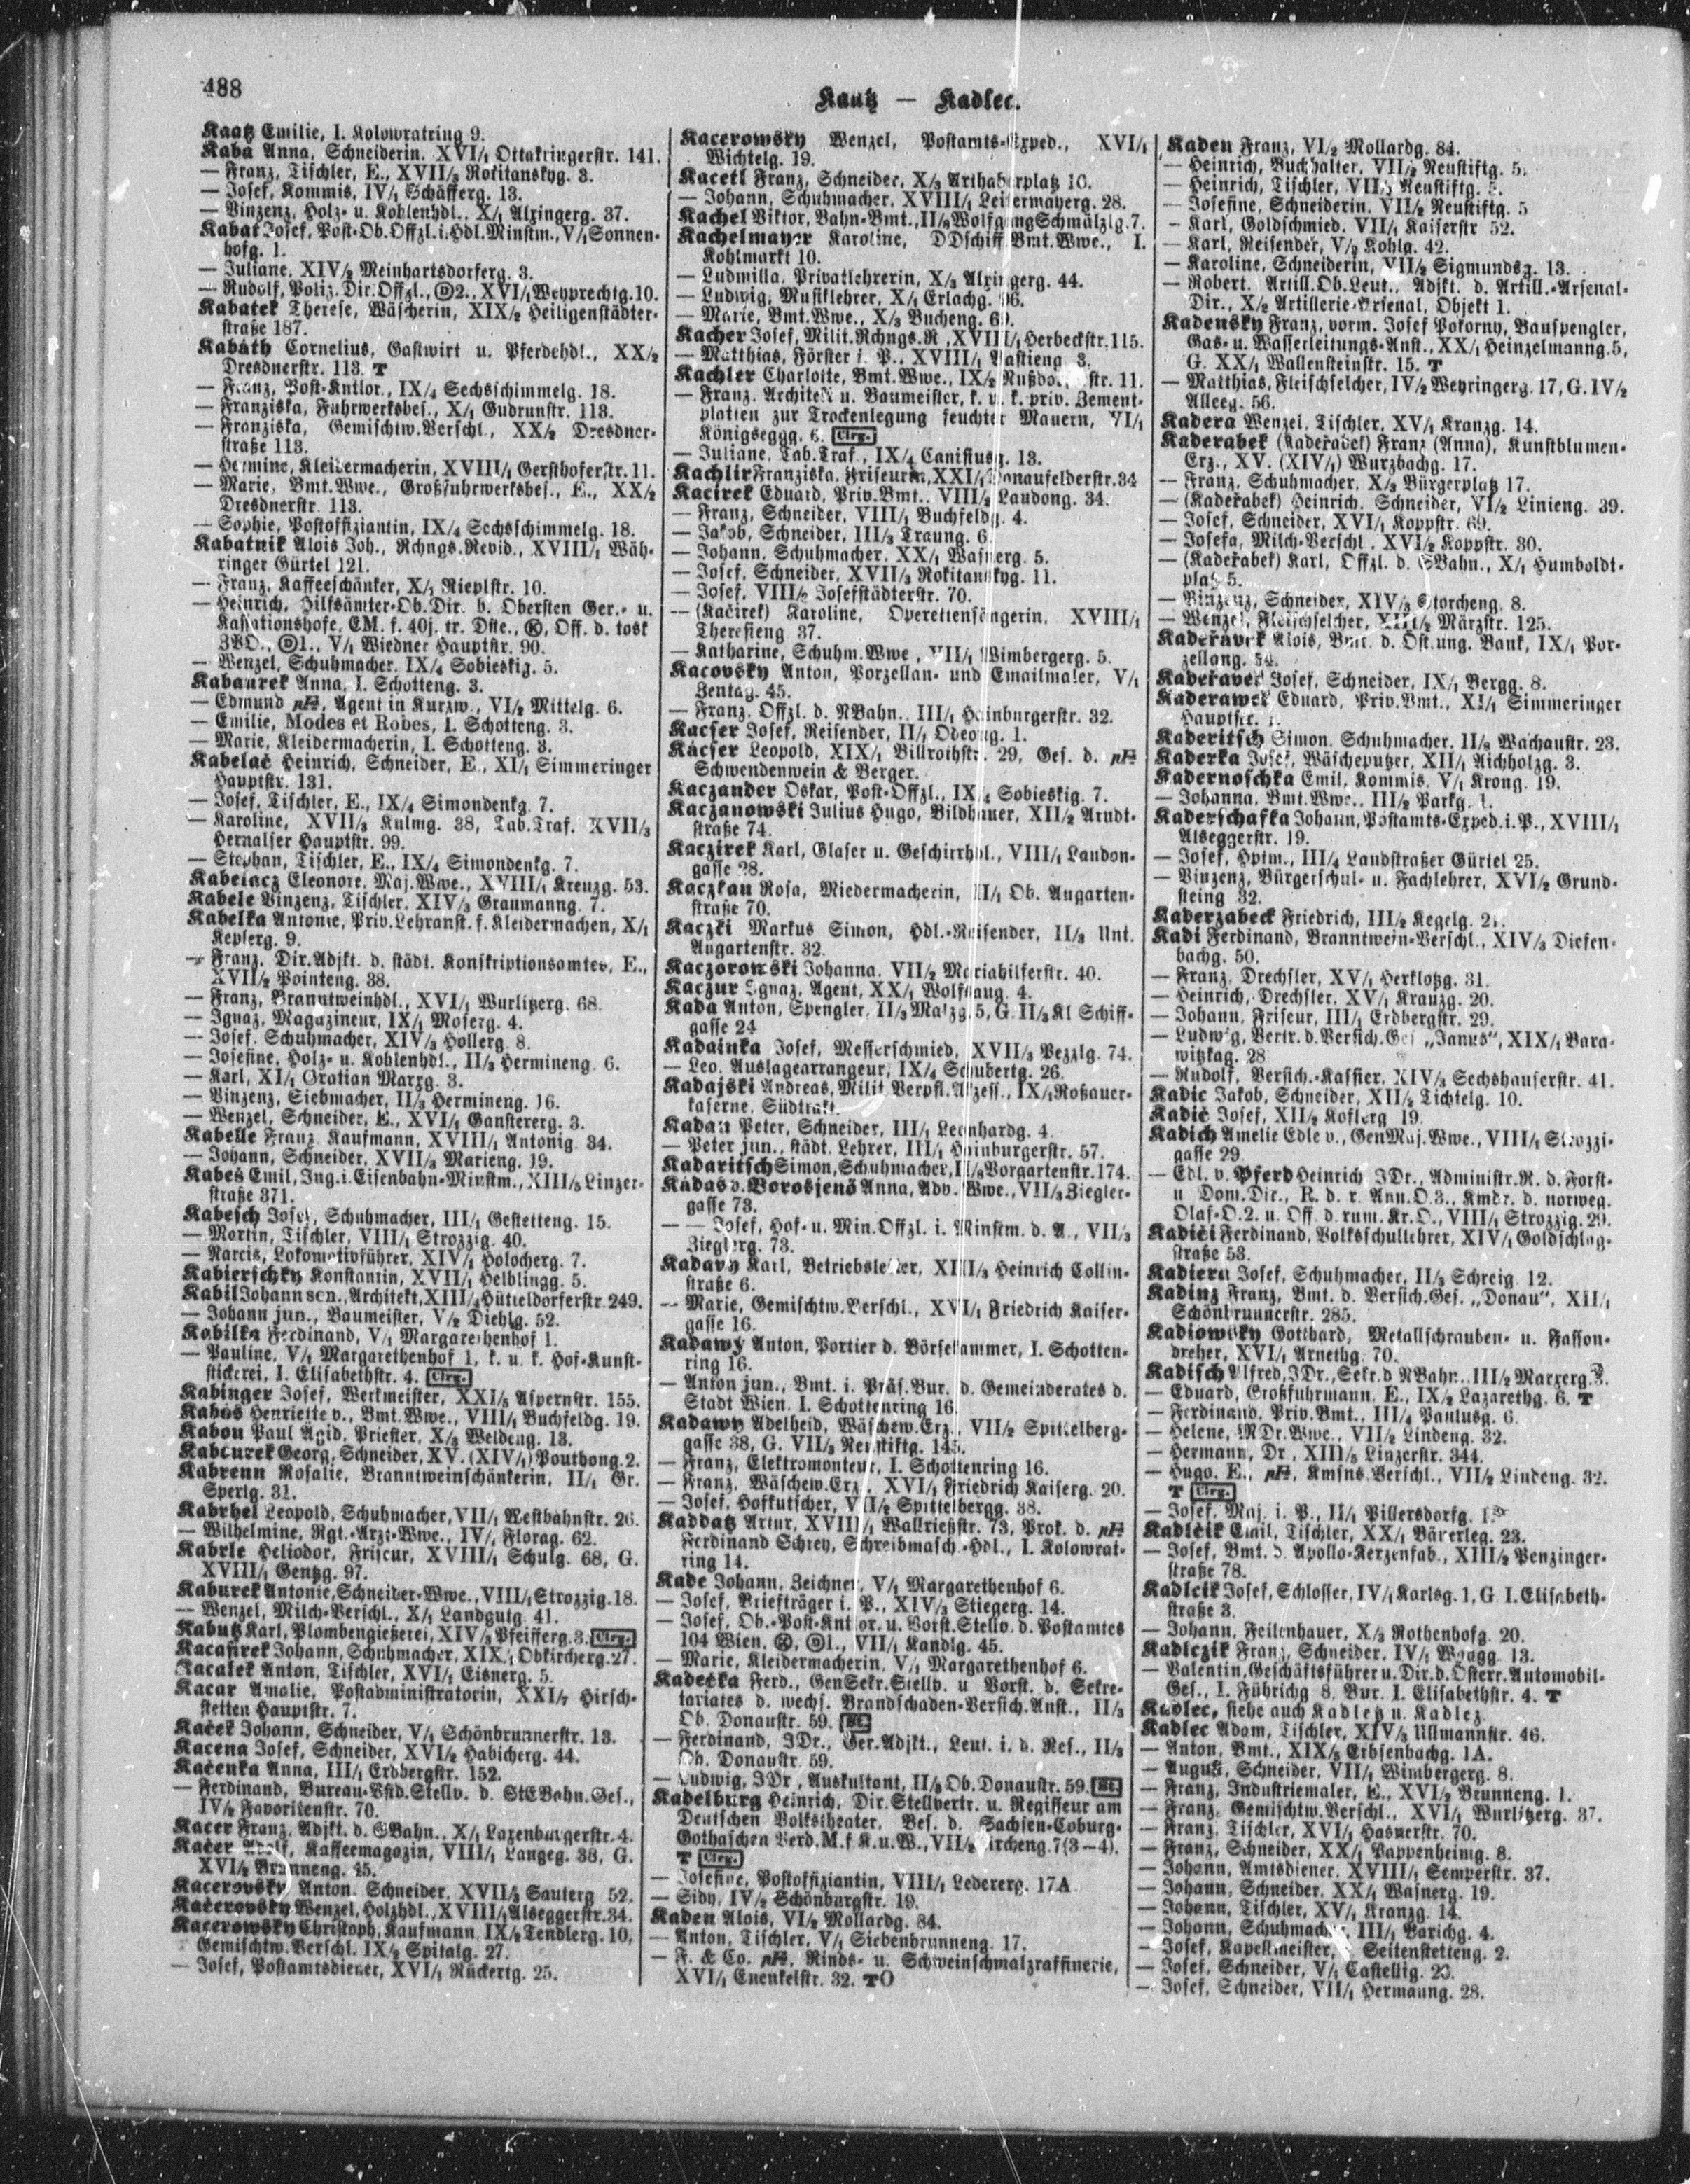 488
Kaatz — Kadlec.
Kaatz Emilie, I. Kolowratring 9.
Kaba Anna, Schneiderin, XVI/1 Ottakringerstr. 141.
— Franz, Tischler, E., XVII/3 Rokitanskyg. 3.
— Josef, Kommis, IV/1 Schäfferg. 13.
— Vinzenz, Holz- u. Kohlenhdl., X/1 Alxingerg. 37.
Kabat Josef, Post-Ob.Offzl.i.Hdl.Minstm., V/1 Sonnen-
hofg. 1.
— Juliane, XIV/2 Meinhartsdorferg. 3.
— Rudolf, Poliz.Dir.Offzl., 2., XVI/1 Weyprechtg. 10.
Kabatek Therese, Wäscherin, XIX/2 Heiligenstädter-
straße 187.
Kabáth Cornelius, Gastwirt u. Pferdehdl., XX/2
Dresdnerstr. 113. T
— Franz, Post-Kntlor., IX/4 Sechsschimmelg. 18.
— Franziska, Fuhrwerksbes., X/1 Gudrunstr. 113.
— Franziska, Gemischtw.Verschl., XX/2 Dresdner-
straße 113.
— Hermine, Kleidermacherin, XVIII/1 Gersthoferstr. 11.
— Marie, Bmt.Wwe., Großfuhrwerksbes., E., XX/2
Dresdnerstr. 113.
— Sophie, Postoffiziantin, IX/4 Sechsschimmelg. 18.
Kabatnik Alois Joh., Rchngs.Revid., XVIII/1 Wäh-
ringer Gürtel 121.
— Franz, Kaffeeschänker, X/1 Rieplstr. 10.
— Heinrich, Hilfsämter-Ob.Dir. b. Obersten Ger.- u.
Kassationshofe, EM. f. 40j. tr. Dste., Off. d. tosk
ZVO., 1., V/1 Wiedner Hauptstr. 90.
— Wenzel, Schuhmacher, IX/4 Sobieskig. 5.
Kabaurek Anna, I. Schotteng. 3.
— Edmund, Agent in Kurzw., VI/2 Mittelg. 6.
— Emilie, Modes et Robes, I. Schotteng. 3.
— Marie, Kleidermacherin, I. Schotteng. 3.
Kabelač Heinrich, Schneider, E., XI/1 Simmeringer
Hauptstr. 131.
— Josef, Tischler, E., IX/4 Simondenkg. 7.
— Karoline, XVII/3 Kulmg. 38, Tab.Traf. XVII/3
Hernalser Hauptstr. 99.
— Stephan, Tischler, E., IX/4 Simondenkg. 7.
Kabelacz Eleonore, Maj.Wwe., XVIII/1 Kreuzg. 53.
Kabele Vinzenz, Tischler, XIV/3 Graumanng. 7.
Kabelka Antonie, Priv.Lehranst. f. Kleidermachen, X/1
Keplerg. 9.
— Franz, Dir.Adjkt. d. städt. Konskriptionsamtes, E.,
XVII/2 Pointeng. 38.
— Franz, Branntweinhdl., XVI/1 Wurlitzerg. 68.
— Ignaz, Magazineur, IX/1 Moserg. 4.
— Josef, Schuhmacher, XIV/3 Hollerg. 8.
— Josefine, Holz- u. Kohlenhdl., II/3 Hermineng. 6.
— Karl, XI/1 Gratian Marxg. 3.
— Vinzenz, Siebmacher, II/3 Hermineng. 16.
— Wenzel, Schneider, E., XVI/1 Ganstererg. 3.
Kabelle Franz, Kaufmann, XVIII/1 Antonig. 34.
— Johann, Schneider, XVII/3 Marieng. 19.
Kabeš Emil, Ing.i.Eisenbahn-Minstm., XIII/5 Linzer-
straße 371.
Kabesch Josef, Schuhmacher, III/1 Gestetteng. 15.
— Martin, Tischler, VIII/1 Strozzig. 40.
— Narcis, Lokomotivführer, XIV/1 Holocherg. 7.
Kabierschky Konstantin, XVII/1 Helblingg. 5.
Kabil Johann sen., Architekt, XIII/4 Hütteldorferstr. 249.
— Johann jun., Baumeister, V/2 Diehlg. 52.
Kabilka Ferdinand, V/1 Margarethenhof 1.
— Pauline, V/1 Margarethenhof 1, k. u. k. Hof-Kunst-
stickerei, I. Elisabethstr. 4. Clrg.
Kabinger Josef, Werkmeister, XXI/5 Aspernstr. 155.
Kabos Henriette v., Bmt.Wwe., VIII/1 Buchfeldg. 19.
Kabou Paul Agid, Priester, X/3 Weldeng. 13.
Kabourek Georg, Schneider, XV. (XIV/1) Pouthong. 2.
Kabrenn Rosalie, Branntweinschänkerin, II/1 Gr.
Sperlg. 31.
Kabrhel Leopold, Schuhmacher, VII/1 Westbahnstr. 26.
— Wilhelmine, Rgt.-Arzt-Wwe., IV/1 Florag. 62.
Kabrle Heliodor, Friseur, XVIII/1 Schulg. 68, G.
XVIII/1 Gentzg. 97.
Kaburek Antonie, Schneider-Wwe., VIII/1 Strozzig. 18.
— Wenzel, Milch-Verschl., X/1 Landgutg. 41.
Kabutz Karl, Plombengießerei, XIV/3 Pfeifferg. 3. Clrg.
Kacafirek Johann, Schuhmacher, XIX/1 Obkircherg. 27.
Kacalek Anton, Tischler, XVI/1 Eisnerg. 5.
Kacar Amalie, Postadministratorin, XXI/7 Hirsch-
stetten Hauptstr. 7.
Kaček Johann, Schneider, V/1 Schönbrunnerstr. 13.
Kacena Josef, Schneider, XVI/2 Habicherg. 44.
Kačenka Anna, III/1 Erdbergstr. 152.
— Ferdinand, Bureau-Vstd.Stellv. d. StEBahn.Ges.,
IV/2 Favoritenstr. 70.
Kacer Franz, Adjkt. d. SBahn., X/1 Laxenburgerstr. 4.
Kačer Adolf, Kaffeemagazin, VIII/1 Langeg. 38, G.
XVI/2 Brunneng. 45.
Kacerovsky Anton, Schneider, XVII/3 Sauterg. 52.
Kačerovsky Wenzel, Holzhdl., XVIII/1 Alseggerstr. 34.
Kacerowsky Christoph, Kaufmann, IX/2 Tendlerg. 10,
Gemischtw.Verschl. IX/2 Spitalg. 27.
— Josef, Postamtsdiener, XVI/1 Rückertg. 25.
Kacerowsky Wenzel, Postamts-Exped., XVI/1
Wichtelg. 19.
Kacetl Franz, Schneider, X/3 Arthaberplatz 10.
— Johann, Schuhmacher, XVIII/1 Leitermayerg. 28.
Kachel Viktor, Bahn-Bmt., II/2 Wolfgang Schmälzlg. 7.
Kachelmayer Karoline, DDschiff.Bmt.Wwe., I.
Kohlmarkt 10.
— Ludmilla, Privatlehrerin, X/3 Alxingerg. 44.
— Ludwig, Musiklehrer, X/1 Erlachg. 96.
— Marie, Bmt.Wwe., X/3 Bucheng.
Kacher Josef, Milit.Rchngs.R., XVIII/1 Herbeckstr. 115.
— Matthias, Förster i. P., XVIII/1 Bastieng. 3.
Kachler Charlotte, Bmt.Wwe., IX/2 Nußdorferstr. 11.
— Franz, Architekt u. Baumeister, k. u. k. priv. Zement-
platten zur Trockenlegung feuchter Mauern, VI/1
Königseggg. 6. Clrg.
— Juliane, Tab.Traf., IX/4 Canisiusg. 13.
Kachlir Franziska, Friseurin, XXI/1 Donaufelderstr. 34
Kacirek Eduard, Priv.Bmt., VIII/2 Laudong. 34.
— Franz, Schneider, VIII/1 Buchfeldg. 4.
— Jakob, Schneider, III/3 Traung. 6.
— Johann, Schuhmacher, XX/1 Wasnerg. 5.
— Josef, Schneider, XVII/3 Rokitanskyg. 11.
— Josef, VIII/2 Josefstädterstr. 70.
— (Kačirek) Karoline, Operettensängerin, XVIII/1
Theresieng. 37.
— Katharine, Schuhm.Wwe., VII/1 Wimbergerg. 5.
Kacovsky Anton, Porzellan- und Emailmaler, V/1
Zentag. 45.
— Franz, Offzl. d. NBahn., III/1 Hainburgerstr. 32.
Kacser Josef, Reisender, II/1 Odeong. 1.
Kácser Leopold, XIX/1 Billrothstr. 29, Ges. d.
Schwendenwein & Berger.
Kaczander Oskar, Post-Offzl., IX/4 Sobieskig. 7.
Kaczanowski Julius Hugo, Bildhauer, XII/2 Arndt-
straße 74.
Kaczirek Karl, Glaser u. Geschirrhdl., VIII/1 Landon-
gasse 28.
Kaczkau Rosa, Miedermacherin, II/1 Ob. Augarten-
straße 70.
Kaczki Markus Simon, Hdl.-Reisender, II/3 Unt.
Augartenstr. 32.
Kaczorowski Johanna, VII/2 Mariahilferstr. 40.
Kaczur Ignaz, Agent, XX/1 Wolfsaug. 4.
Kada Anton, Spengler, II/3 Malzg. 5, G. II/3 Kl Schiff-
gasse 24
Kadainka Josef, Messerschmied, XVII/3 Pezzlg. 74.
— Leo, Auslagearrangeur, IX/4 Schubertg. 26.
Kadajski Andreas, Milit.Verpfl.Akzess., IX/1 Roßauer-
kaserne, Südtrakt.
Kadan Peter, Schneider, III/1 Leonhardg. 4.
— Peter jun., städt. Lehrer, III/1 Hainburgerstr. 57.
Kadaritsch Simon, Schuhmacher, II/3 Vorgartenstr. 174.
Kádas v. Borosjenö Anna, Adv.Wwe., VII/3 Ziegler-
gasse 73.
— — Josef, Hof- u. Min.Offzl. i. Minstm. d. A., VII/3
Zieglerg. 73.
Kadavy Karl, Betriebsleiter, XIII/3 Heinrich Collin-
straße 6.
— Marie, Gemischtw.Verschl., XVI/1 Friedrich Kaiser-
gasse 16.
Kadawý Anton, Portier d. Börsekammer, I. Schotten-
ring 16.
— Anton jun., Bmt. i. Präs.Bur. d. Gemeinderates d.
Stadt Wien, I. Schottenring 16.
Kadawy Adelheid, Wäschew.Erz., VII/2 Spittelberg-
gasse 38, G. VII/3 Neustiftg. 145.
— Franz, Elektromonteur, I. Schottenring 16.
— Franz, Wäschew.Erz., XVI/1 Friedrich Kaiserg. 20.
— Josef, Hofkutscher, VII/2 Spittelbergg. 38.
Kaddatz Artur, XVIII/1 Wallrießstr. 73, Prok. d.
Ferdinand Schrey, Schreibmasch.-Hdl., I. Kolowrat-
ring 14.
Kade Johann, Zeichner, V/1 Margarethenhof 6.
— Josef, Briefträger i. P., XIV/3 Stiegerg. 14.
— Josef, Ob.-Post-Kntlor. u. Vorst.Stellv. d. Postamtes
104 Wien, 1., VII/1 Kandlg. 45.
— Marie, Kleidermacherin, V/1 Margarethenhof 6.
Kadečka Ferd., GenSekr.Stellv. u. Vorst. d. Sekre-
tariates d. wechs. Brandschaden-Versich.Anst., II/3
Ob. Donaustr. 59. St.
— Ferdinand, JDr., Ger.Adjkt., Leut. i. d. Res., II/3
Ob. Donaustr. 59.
— Ludwig, JDr., Auskultant, II/3 Ob. Donaustr. 59. St.
Kadelburg Heinrich, Dir.Stellvertr. u. Regisseur am
Deutschen Volkstheater, Bes. d. Sachsen-Coburg-
Gothaschen Verd.M.f.K.u.W., VII/2 Kircheng. 7 (3—4).
T Clrg.
— Josefine, Postoffiziantin, VIII/1 Ledererg. 17A
— Sidy, IV/2 Schönburgstr. 19.
Kaden Alois, VI/2 Mollardg. 84.
— Anton, Tischler, V/1 Siebenbrunneng. 17.
— F. & Co., Rinds- u. Schweinschmalzraffinerie,
XVI/1 Enenkelstr. 32. TO
Kaden Franz, VI/2 Mollardg. 84.
— Heinrich, Buchhalter, VII/2 Neustiftg. 5.
— Heinrich, Tischler, VII/2 Neustiftg. 5.
— Josefine, Schneiderin, VII/2 Neustiftg. 5
— Karl, Goldschmied, VII/1 Kaiserstr 52.
— Karl, Reisender, V/2 Kohlg. 42.
— Karoline, Schneiderin, VII/2 Sigmundsg. 13.
— Robert, Artill.Ob.Leut., Adjkt. d. Artill.-Arsenal-
Dir., X/2 Artillerie-Arsenal, Objekt 1.
Kadensky Franz, vorm. Josef Pokorny, Bauspengler,
Gas- u. Wasserleitungs-Anst., XX/1 Heinzelmanng. 5,
G. XX/1 Wallensteinstr. 15. T
— Matthias, Fleischselcher, IV/2 Weyringerg. 17, G. IV/2
Alleeg. 56.
Kadera Wenzel, Tischler, XV/1 Kranzg. 14.
Kaderabek (Kadeřabek) Franz (Anna), Kunstblumen-
Erz., XV. (XIV/1) Wurzbachg. 17.
— Franz, Schuhmacher, X/3 Bürgerplatz 17.
— (Kadeřabek) Heinrich, Schneider, VI/2 Linieng. 39.
— Josef, Schneider, XVI/1 Koppstr. 69.
— Josefa, Milch-Verschl., XVI/2 Koppstr. 30.
— (Kadeřabek) Karl, Offzl. d. SBahn., X/1 Humboldt-
platz 5.
— Vinzenz, Schneider, XIV/3 Storcheng. 8.
— Wenzel, Fleischselcher, XIII/2 Märzstr. 125.
Kadeřávek Alois, Bmt. d. Öst.ung. Bank, IX/1 Por-
zellang. 54.
Kadeřaver Josef, Schneider, IX/1 Bergg. 8.
Kaderawek Eduard, Priv.Bmt., XI/1 Simmeringer
Hauptstr. 1.
Kaderitsch Simon, Schuhmacher, II/8 Wachaustr. 23.
Kaderka Josef, Wäscheputzer, XII/1 Aichholzg. 3.
Kadernoschka Emil, Kommis, V/1 Krong. 19.
— Johanna, Bmt.Wwe., III/2 Parkg. 1.
Kaderschafka Johann, Postamts-Exped.i.P., XVIII/1
Alseggerstr. 19.
— Josef, Hptm., III/4 Landstraßer Gürtel 25.
— Vinzenz, Bürgerschul- u. Fachlehrer, XVI/2 Grund-
steing 32.
Kaderzabeck Friedrich, III/2 Kegelg.
Kadi Ferdinand, Branntwein-Verschl., XIV/3 Diefen-
bachg. 50.
— Franz, Drechsler, XV/1 Herklotzg. 31.
— Heinrich, Drechsler, XV/1 Kranzg. 20.
— Johann, Friseur, III/1 Erdbergstr. 29.
— Ludwig, Vertr. d. Versich.Ges. „Janus", XIX/1 Bara-
witzkag. 28
— Rudolf, Versich.-Kassier, XIV/3 Sechshauserstr. 41.
Kadic Jakob, Schneider, XII/2 Tichtelg. 10.
Kadič Josef, XII/2 Koflerg 19.
Kadich Amelie Edle v., GenMaj.Wwe., VIII/1 Strozzi-
gasse 29
— Edl. v. Pferd Heinrich JDr., Administr.R. d. Forst-
u Dom.Dir., R. d. r. Ann.O.3., Kmdr. d. norweg.
Olaf-O.2. u. Off. d. rum. Kr.O., VIII/1 Strozzig. 29.
Kadiči Ferdinand, Volksschullehrer, XIV/1 Goldschlag-
straße 53.
Kadiera Josef, Schuhmacher, II/3 Schreig. 12.
Kadinz Franz, Bmt. d. Versich.Ges. „Donau", XII/1
Schönbrunnerstr. 285.
Kadiowsky Gotthard, Metallschrauben- u. Fasson-
dreher, XVI/1 Arnethg. 70.
Kadisch Alfred, JDr., Sekr.d NBahn., III/2 Marxerg.
— Eduard, Großfuhrmann, E., IX/2 Lazarethg. 6. T
— Ferdinand, Priv.Bmt., III/4 Paulusg. 6.
— Helene, MDr.Wwe., VII/2 Lindeng. 32.
— Hermann, Dr., XIII/5 Linzerstr. 344.
— Hugo, E., Kmsns.Verschl., VII/2 Lindeng. 32.
T Clrg.
— Josef, Maj. i. P., II/1 Pillersdorfg.
Kadlčik Emil, Tischler, XX/1 Bäuerleg. 23.
— Josef, Bmt. d. Apollo-Kerzenfab., XIII/2 Penzinger-
straße 78.
Kadlcik Josef, Schlosser, IV/1 Karlsg. 1, G I. Elisabeth-
straße 3.
— Johann, Feilenhauer, X/3 Rothenhofg. 20.
Kadlczik Franz, Schneider, IV/1 Waagg. 13.
— Valentin, Geschäftsführer u. Dir.d.Österr.Automobil-
Ges., I. Führichg 8, Bur. I. Elisabethstr. 4. T
Kadlec, siehe auch Kadletz u. Kadlez.
Kadlec Adam, Tischler, XIV/3 Ullmannstr. 46.
— Anton, Bmt., XIX/5 Erbsenbachg. 1A.
— August, Schneider, VII/1 Wimbergerg. 8.
— Franz, Industriemaler, E., XVI/2 Brunneng. 1.
— Franz, Gemischtw.Verschl., XVI/1 Wurlitzerg. 37.
— Franz, Tischler, XVI/1 Hasnerstr. 70.
— Franz, Schneider, XX/1 Pappenheimg. 8.
— Johann, Amtsdiener, XVIII/1 Semperstr. 37.
— Johann, Schneider, XX/1 Wasnerg. 19.
— Johann, Tischler, XV/1 Kranzg. 14.
— Johann, Schuhmacher, III/1 Barichg. 4.
— Josef, Kapellmeister, Seitenstetteng. 2.
— Josef, Schneider, V/1 Castellig. 23.
— Josef, Schneider, VII/1 Hermanng. 28.